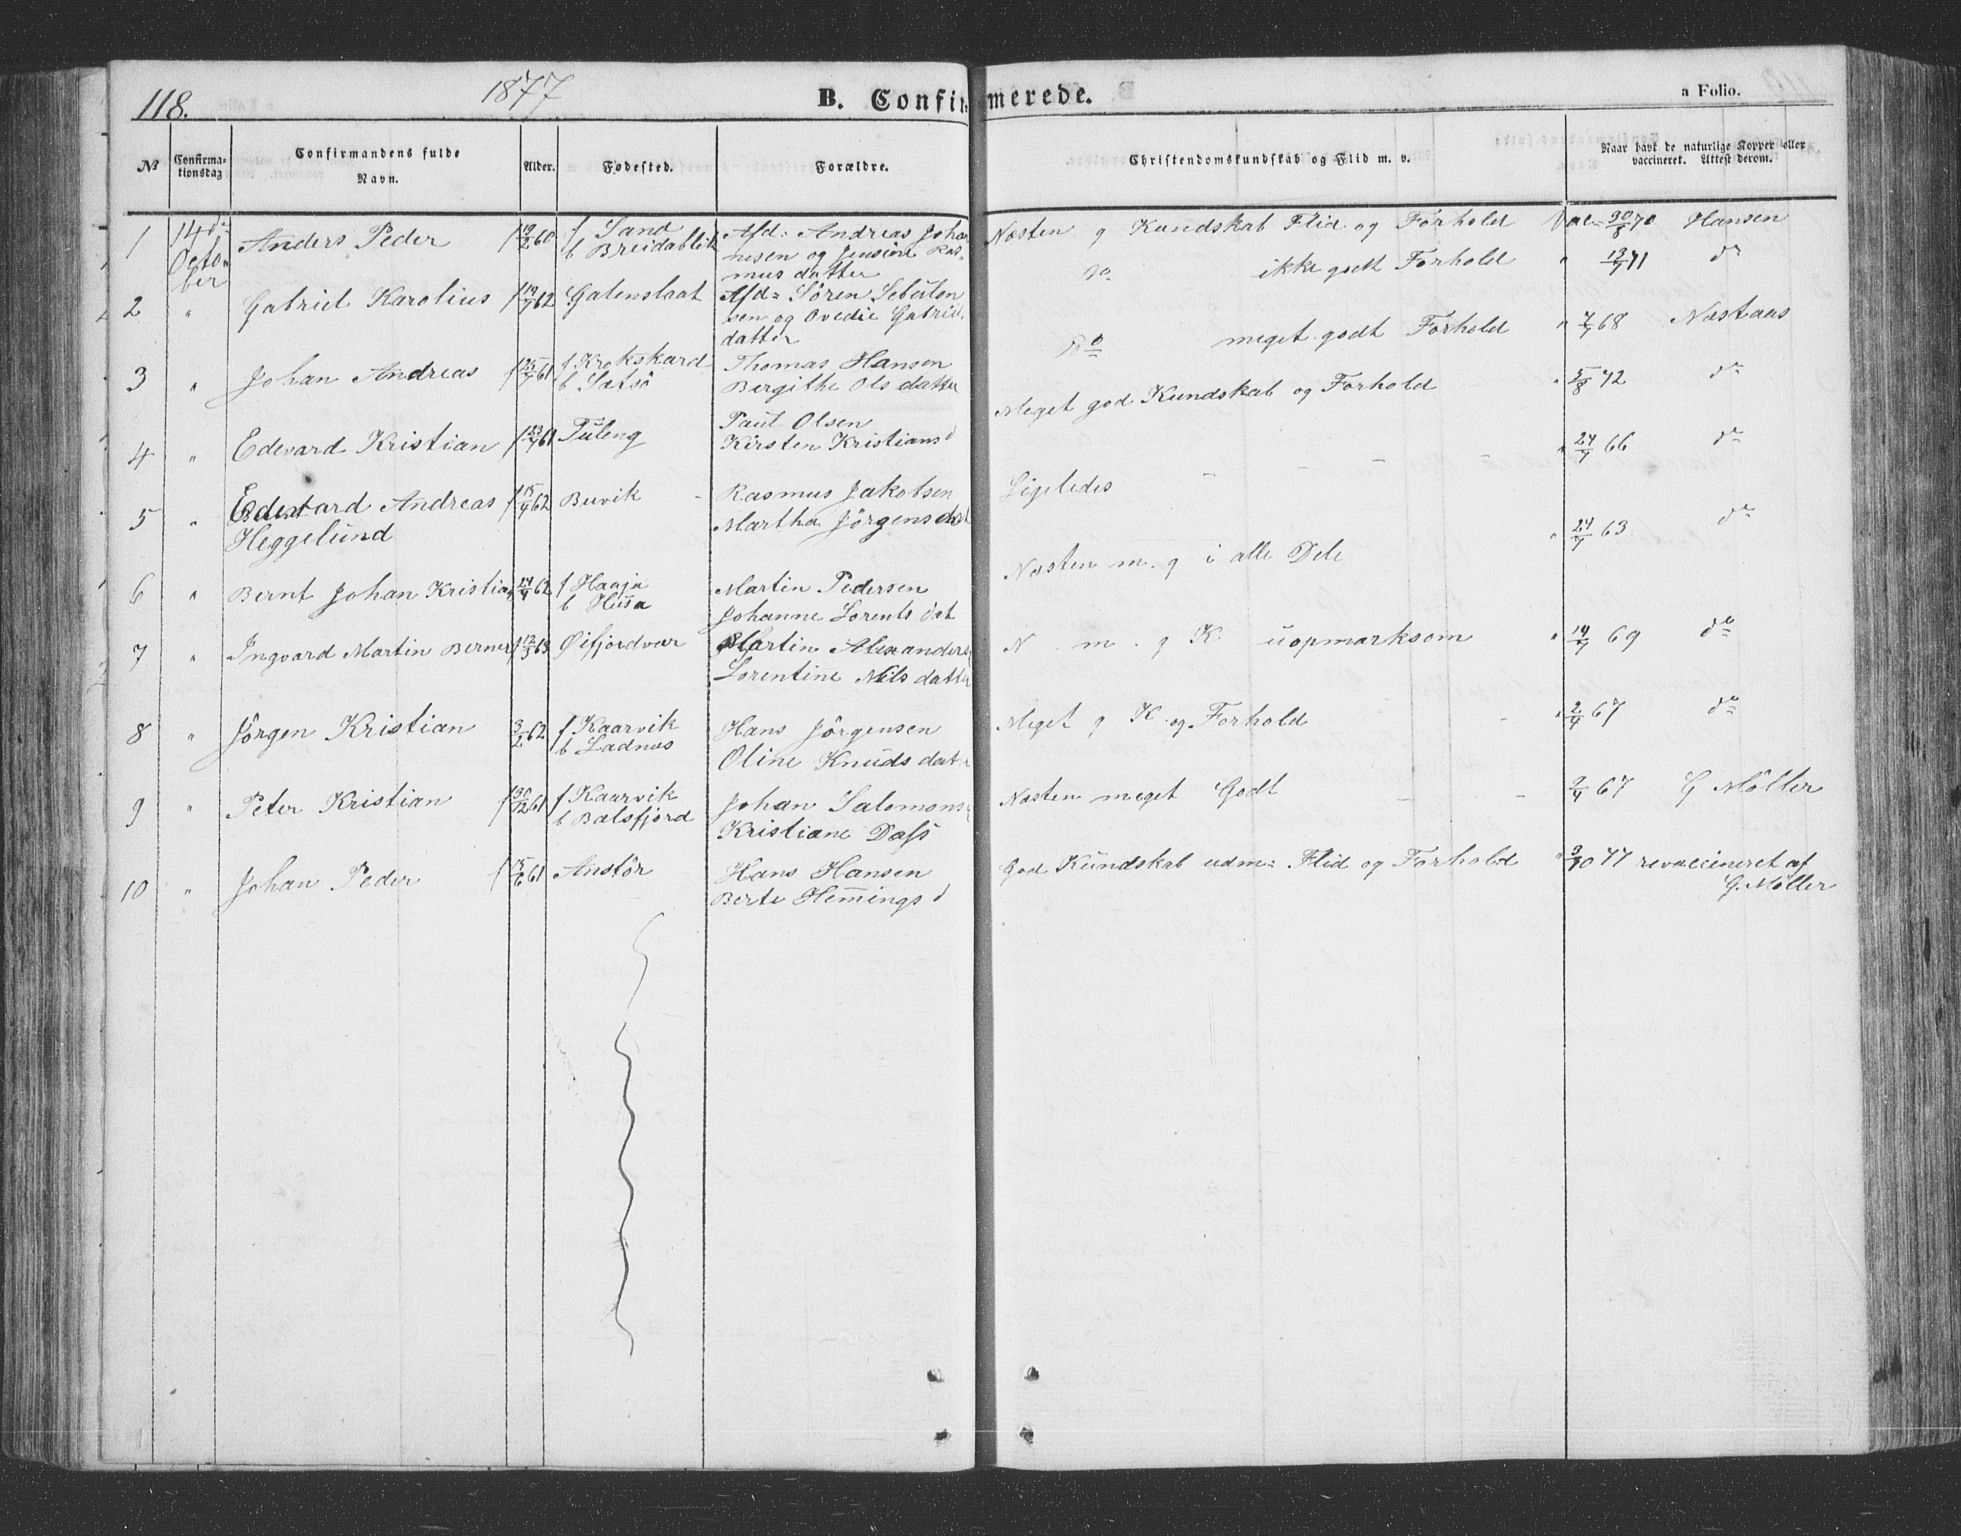 118.
1877
B. Confirmerede.
a Folio.
№
Confirma-
tionsdag
Confirmandens fulde
Navn.
Alder.
Fødested.
Forældre.
Christendomskundskab og Flid m. v.
Naar havt de naturlige Kopper eller
vaccineret. Attest derom.
1 14de Anders Peder f 60 f Sand Afd: Andreas Johan
October b Breidablik nesen og Jensine Ras
musdatter
Næsten g Kundskab Flid og Forhold Vac 30/8 70 Hansen
2 " Gabriel Karolius f 19/7 62 Afd= Sören
sen og Ovedie Gabriel
datter
Do ikke godt Forhold " 71 do
3 " Johan Andreas f 25/7 61 f Krokskard Thomas Hansen
b Satsö Bergithe Olsdatter
Do meget godt Forhold " 7/7 68 Næstaas
4 " Edevard Kristian f 61 Tuleng Paul Olsen
Kirsten Kristiansd
Meget god Kundskab og Forhold " 72 do
5 " Edevard Andreas f 62 Buvik Rasmus Jakobsen
Heggelund Martha Jörgensdat
Ligeledes " 24/7 66 do
6 " Bernt Johan Kristian 62 f Haaja Martin Pedersen
b Husa Johanne Lorentsdat
Næsten m. g i alle Dele " 24/7 63 do
7 " Ingvard Martin Berner f 12/3 63 Øifjordvær Martin Alexanders
Lorentine Nilsdatter
N . m . g K. uopmærksom " 69 do
8 " Jörgen Kristian 3/2 62 f Kaarvik Hans Jörgensen
b Ladnæs Oline Knudsdat
Meget g K. og Forhold " 67 do
9 " Peter Kristian f 30/12 61 f Kaarvik Johan Salomons
b Balsfjord Kristiane Dass
Næsten meget Godt 67 G Möller
10 " Johan Peder f 15/6 61 Anstör Hans Hansen
Berte Hemingsd
God Kundskab udm= Flid og Forhold " 9/10 77 revaccineret af
G. Möller